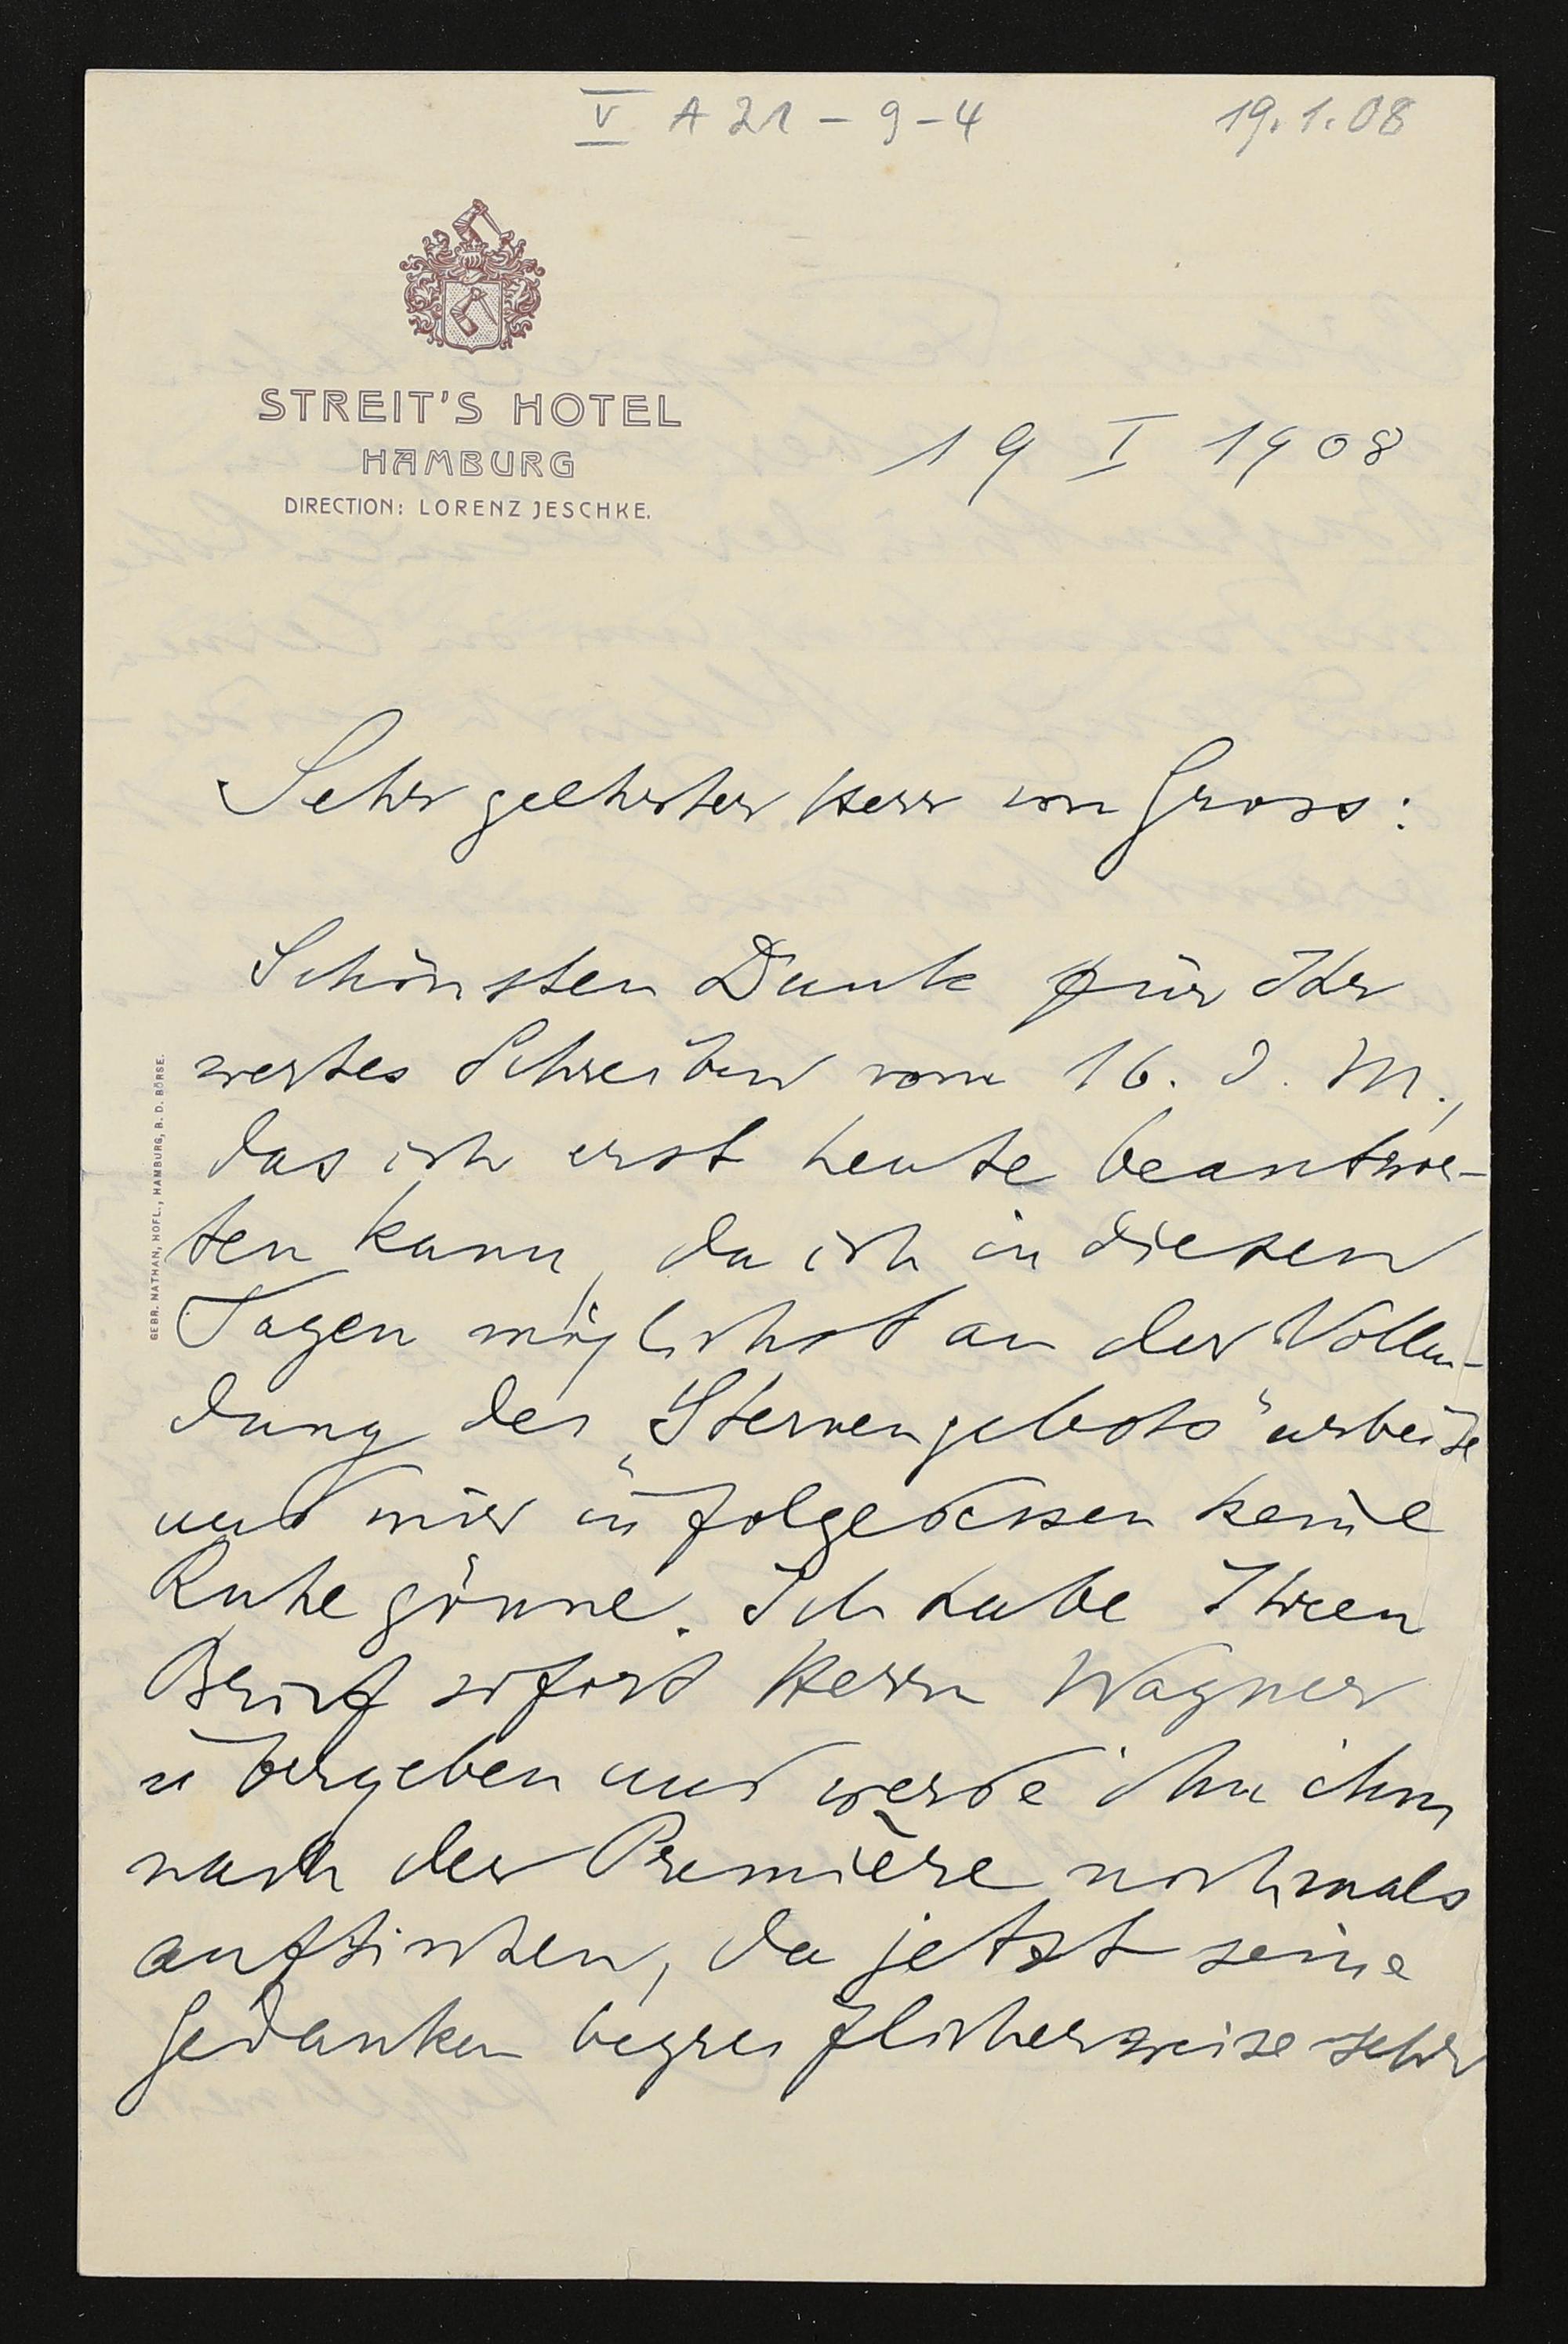 V A 21 - 9 - 4
19.1.08
STREIT'S HOTEL
HAMBURG
DIRECTION: LORENZ JESCHKE.
19 I 1908
Sehr geehrter Herr von Gross:
Schönsten Dank für Ihr
wertes Schreiben vom 16. d. M.,
das ich erst heute beantwor-
ten kann, da ich in diesen
Tagen möglichst an der Vollen-
dung des „Sternengebots" arbeite
und mir in folgedessen keine
Ruhe gönne. Ich habe Ihren
Brief sofort Herrn Wagner
übergeben und werde ihn ihm
nach der Première nochmals
auftischen, da jetzt seine
Gedanken begreiflicherweise sehr
GEBR. NATHAN, HOFL., HAMBURG, B. D. BÖRSE.